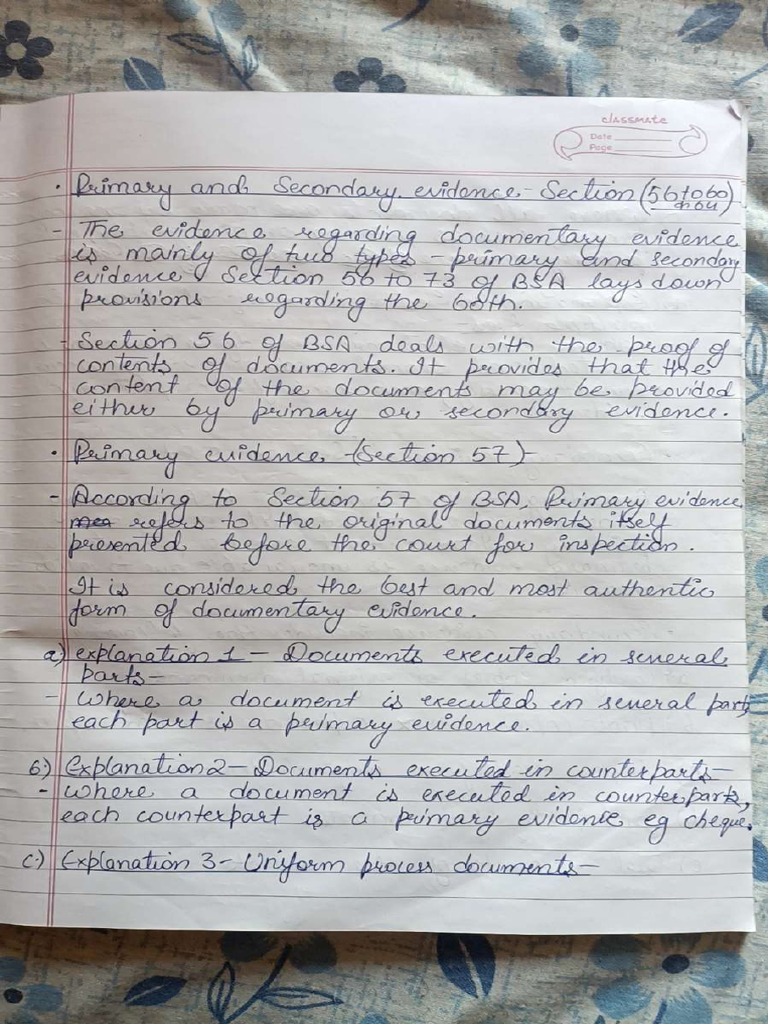 classmate
Date
Page
• Primary and Secondary evidence - Section (56 to 60)
- The evidence regarding documentary evidence
is mainly of two types - primary and secondary
evidence. Section 56 to 73 of BSA lays down
provisions regarding the both.
- Section 56 of BSA deals with the proof of
contents of documents. It provides that the
content of the documents may be provided
either by primary or secondary evidence.
• Primary evidence - (Section 57) -
- According to Section 57 of BSA, Primary evidence
refers to the original documents itself
presented before the court for inspection.
It is considered the best and most authentic
form of documentary evidence.
a) explanation 1 - Documents executed in several
parts -
- where a document is executed in several parts,
each part is a primary evidence.
b.) Explanation 2 - Documents executed in counterparts -
- where a document is executed in counterparts,
each counterpart is a primary evidence eg cheque.
c.) Explanation 3 - Uniform process documents -